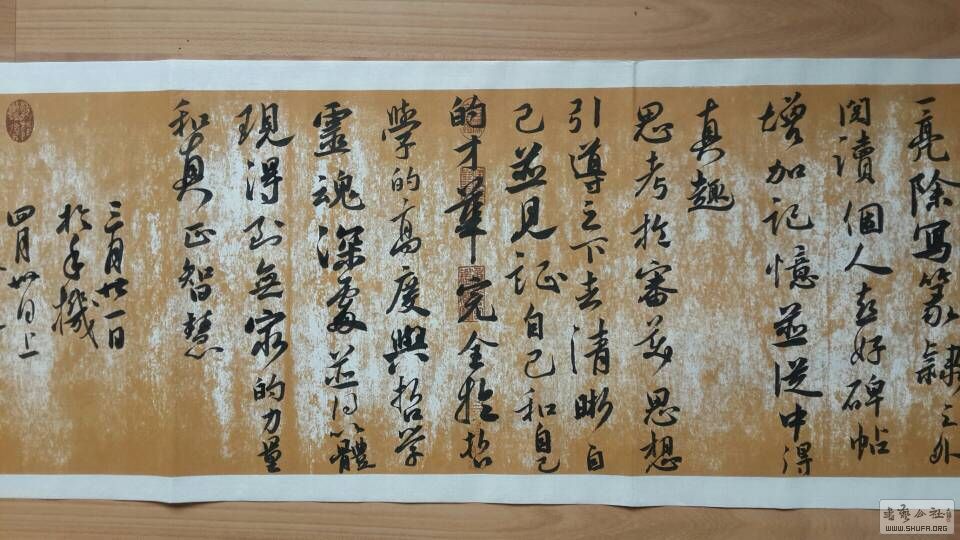 一亮除寫篆隸之外
閱讀個人喜好碑帖
增加記憶並從中得
真趣
思考於審美思想
引導之下去清晰自
己並見证自己和自己
的才華完全於哲
學的高度與哲学
靈魂深處並得以體
現得到無窮的力量
和真正智慧
三月廿一日
於手機
四月廿日上
書藝公社
WWW.SHUFA.ORG